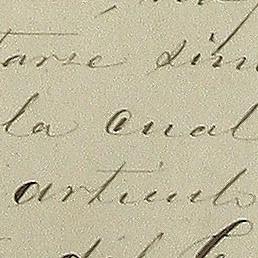 tarse sin
la cual
articulo